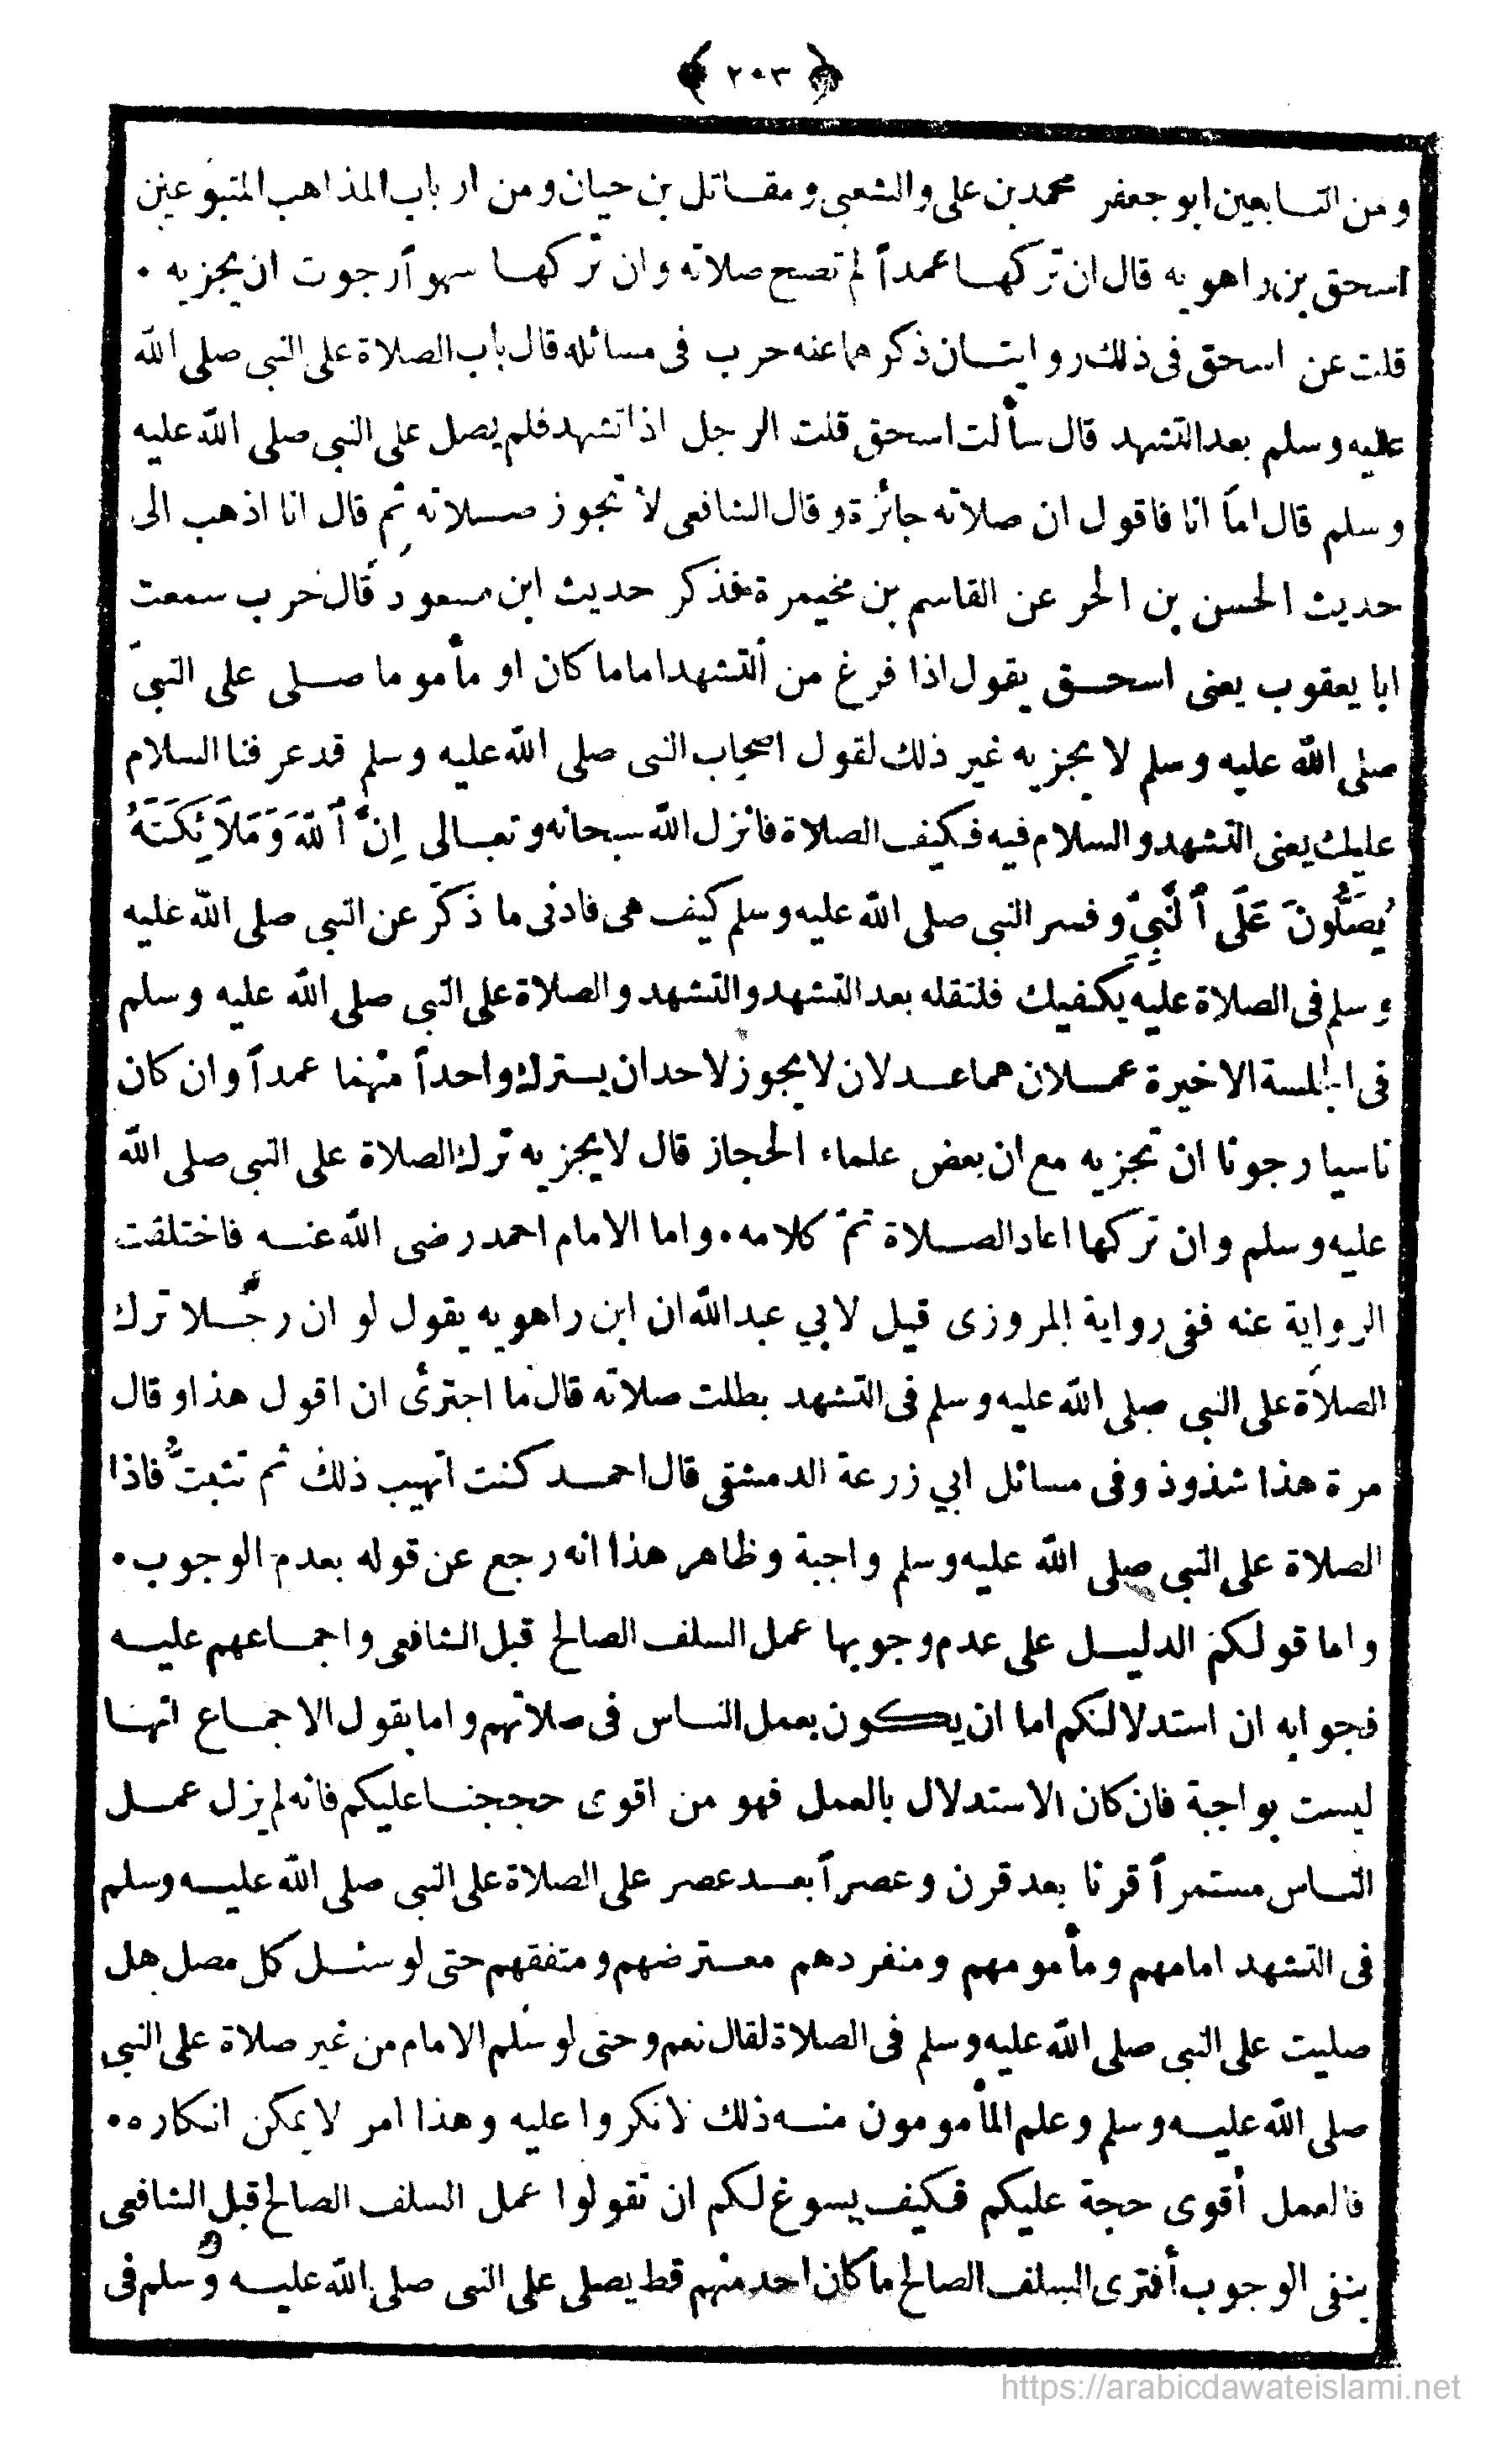 ﴿ ٢٠٣ ﴾
ومن التابعين ابو جعفر محمد بن على والشعبى ومقاتل بن حيان ومن ارباب المذاهب المتبوعين
اسحق بن راهويه قال ان تركها عمداً لم تصح صلاته وان تركها سهواً رجوت ان يجزيه ٠
قلت عن اسحق فى ذلك روايتان ذكرهما عنه حرب فى مسائله قال باب الصلاة على النبى صلى الله
عليه وسلم بعد التشهد قال سألت اسحق قلت الرجل اذا تشهد فلم يصل على النبى صلى الله عليه
وسلم قال اما انا فاقول ان صلاته جائزة وقال الشافعى لا تجوز صلاته ثم قال انا اذهب الى
حديث الحسن بن الحر عن القاسم بن مخيمرة فذكر حديث ابن مسعود قال حرب سمعت
ابا يعقوب يعنى اسحق يقول اذا فرغ من التشهد اماما كان او مأموما صلى على النبى
صلى الله عليه وسلم لا يجزيه غير ذلك لقول اصحاب النبى صلى الله عليه وسلم قد عرفنا السلام
عليك يعنى التشهد والسلام فيه فكيف الصلاة فانزل الله سبحانه وتعالى اِنَّ ٱللَّهَ وَمَلَائِكَتَهُ
يُصَلُّونَ عَلَى ٱلنَّبِيِّ وفسر النبى صلى الله عليه وسلم كيف هى فادنى ما ذكر عن النبى صلى الله عليه
وسلم فى الصلاة عليه يكفيك فلتقله بعد التشهد والتشهد والصلاة على النبى صلى الله عليه وسلم
فى الجلسة الاخيرة عملان هما عدلان لا يجوز لاحد ان يترك واحداً منهما عمداً وان كان
ناسيا رجونا ان تجزيه مع ان بعض علماء الحجاز قال لا يجزيه ترك الصلاة على النبى صلى الله
عليه وسلم وان تركها اعاد الصلاة تمّ كلامه ٠ واما الامام احمد رضى الله عنه فاختلفت
الرواية عنه ففى رواية المروزى قيل لابي عبد الله ان ابن راهويه يقول لو ان رجلا ترك
الصلاة على النبى صلى الله عليه وسلم فى التشهد بطلت صلاته قال ما اجترئ ان اقول هذا وقال
مرة هذا شذوذ وفى مسائل ابي زرعة الدمشقى قال احمد كنت اتهيب ذلك ثم تثبت فاذا
الصلاة على النبى صلى الله عليه وسلم واجبة وظاهر هذا انه رجع عن قوله بعدم الوجوب ٠
واما قولكم الدليل على عدم وجوبها عمل السلف الصالح قبل الشافعى واجماعهم عليه
فجوابه ان استدلالكم اما ان يكون بعمل الناس فى صلاتهم واما بقول الاجماع انها
ليست بواجبة فان كان الاستدلال بالعمل فهو من اقوى حججنا عليكم فانه لم يزل عمل
الناس مستمراً قرنا بعد قرن وعصراً بعد عصر على الصلاة على النبى صلى الله عليه وسلم
فى التشهد امامهم ومأمومهم ومنفردهم معترضهم ومتفقهم حتى لو سئل كل مصل هل
صليت على النبى صلى الله عليه وسلم فى الصلاة لقال نعم وحتى لو سلم الامام من غير صلاة على النبى
صلى الله عليه وسلم وعلم المأمومون منه ذلك لانكروا عليه وهذا امر لا يمكن انكاره ٠
فالعمل أقوى حجة عليكم فكيف يسوغ لكم ان تقولوا عمل السلف الصالح قبل الشافعى
بنفى الوجوب أفترى السلف الصالح ما كان احد منهم قط يصلى على النبى صلى الله عليه وسلم فى
https://arabicdawateislami.net